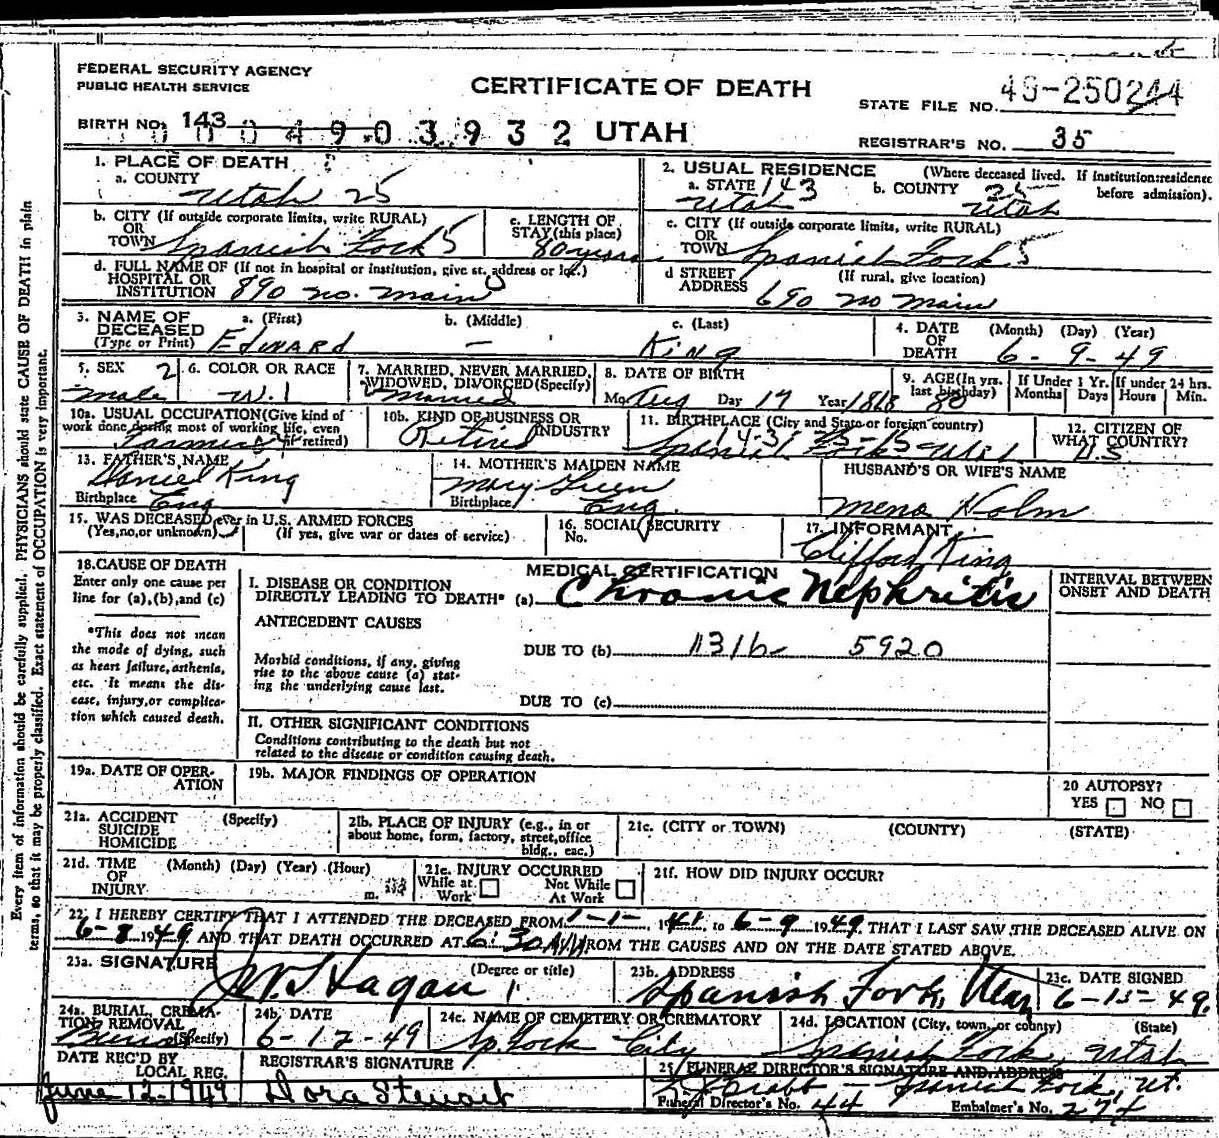 FEDERAL SECURITY AGENCY
PUBLIC HEALTH SERVICE
CERTIFICATE OF DEATH
STATE FILE NO. 49-250244
BIRTH NO. 143
0004903932 UTAH
REGISTRAR'S NO. 35
1. PLACE OF DEATH
a. COUNTY
Utah 25
2. USUAL RESIDENCE (Where deceased lived. If institution: residence before admission).
a. STATE 143 b. COUNTY 25
Utah Utah
b. CITY (If outside corporate limits, write RURAL)
OR
TOWN Spanish Fork 5
c. LENGTH OF
STAY (this place)
80 years
c. CITY (If outside corporate limits, write RURAL)
OR
TOWN Spanish Fork 5
d. FULL NAME OF (If not in hospital or institution, give st. address or loc.)
HOSPITAL OR
INSTITUTION 890 no. main
d STREET (If rural, give location)
ADDRESS 690 no main
3. NAME OF
DECEASED
(Type or Print)
a. (First) b. (Middle) c. (Last)
Edward — King
4. DATE OF DEATH (Month) (Day) (Year)
6-9-49
5. SEX 2
male
6. COLOR OR RACE
W. 1
7. MARRIED, NEVER MARRIED,
WIDOWED, DIVORCED (Specify)
Married
8. DATE OF BIRTH
Mo. Aug Day 17 Year 1868
9. AGE (In yrs. last birthday) 80
If Under 1 Yr. Months Days
If under 24 hrs. Hours Min.
10a. USUAL OCCUPATION (Give kind of
work done during most of working life, even
if retired)
Farmer
10b. KIND OF BUSINESS OR
INDUSTRY
Retired
11. BIRTHPLACE (City and State or foreign country)
Spanish Fork
12. CITIZEN OF
WHAT COUNTRY?
U.S
13. FATHER'S NAME
Daniel King
Birthplace Eng
14. MOTHER'S MAIDEN NAME
Mary Green
Birthplace Eng.
HUSBAND'S OR WIFE'S NAME
Mena Holm
15. WAS DECEASED ever in U.S. ARMED FORCES
(Yes, no, or unknown) (If yes, give war or dates of service)
16. SOCIAL SECURITY
No.
17. INFORMANT
Clifford King
18. CAUSE OF DEATH
Enter only one cause per
line for (a), (b), and (c)
MEDICAL CERTIFICATION
INTERVAL BETWEEN
ONSET AND DEATH
I. DISEASE OR CONDITION
DIRECTLY LEADING TO DEATH* (a) Chronic Nephritis
*This does not mean
the mode of dying, such
as heart failure, asthenia,
etc. It means the dis-
ease, injury, or complica-
tion which caused death.
ANTECEDENT CAUSES
DUE TO (b) 5920
Morbid conditions, if any, giving
rise to the above cause (a) stat-
ing the underlying cause last.
DUE TO (c)
II. OTHER SIGNIFICANT CONDITIONS
Conditions contributing to the death but not
related to the disease or condition causing death.
19a. DATE OF OPER-
ATION
19b. MAJOR FINDINGS OF OPERATION
20 AUTOPSY?
YES NO
21a. ACCIDENT (Specify)
SUICIDE
HOMICIDE
21b. PLACE OF INJURY (e.g., in or
about home, form, factory, street, office
bldg., eac.)
21c. (CITY or TOWN) (COUNTY) (STATE)
21d. TIME (Month) (Day) (Year) (Hour)
OF
INJURY m.
21e. INJURY OCCURRED
While at Work Not While At Work
21f. HOW DID INJURY OCCUR?
22. I HEREBY CERTIFY THAT I ATTENDED THE DECEASED FROM 1-1- 1941, to 6-9 1949. THAT I LAST SAW THE DECEASED ALIVE ON
6-8 1949 AND THAT DEATH OCCURRED AT 6:30 AM FROM THE CAUSES AND ON THE DATE STATED ABOVE.
23a. SIGNATURE (Degree or title)
Hagan
23b. ADDRESS
Spanish Fork, Utah
23c. DATE SIGNED
6-15-49.
24a. BURIAL, CREMA-
TION, REMOVAL
(Specify)
Burial
24b. DATE
6-17-49
24c. NAME OF CEMETERY OR CREMATORY
Sp. Fork City
24d. LOCATION (City, town, or county) (State)
Spanish Fork, Utah
DATE REC'D BY
LOCAL REG.
June 12-1949
REGISTRAR'S SIGNATURE
Dora Stewart
25. FUNERAL DIRECTOR'S SIGNATURE AND ADDRESS
Spanish Fork, Ut.
Funeral Director's No. 44 Embalmer's No. 274
Every item of information should be carefully supplied. PHYSICIANS should state CAUSE OF DEATH in plain
terms, so that it may be properly classified. Exact statement of OCCUPATION is very important.